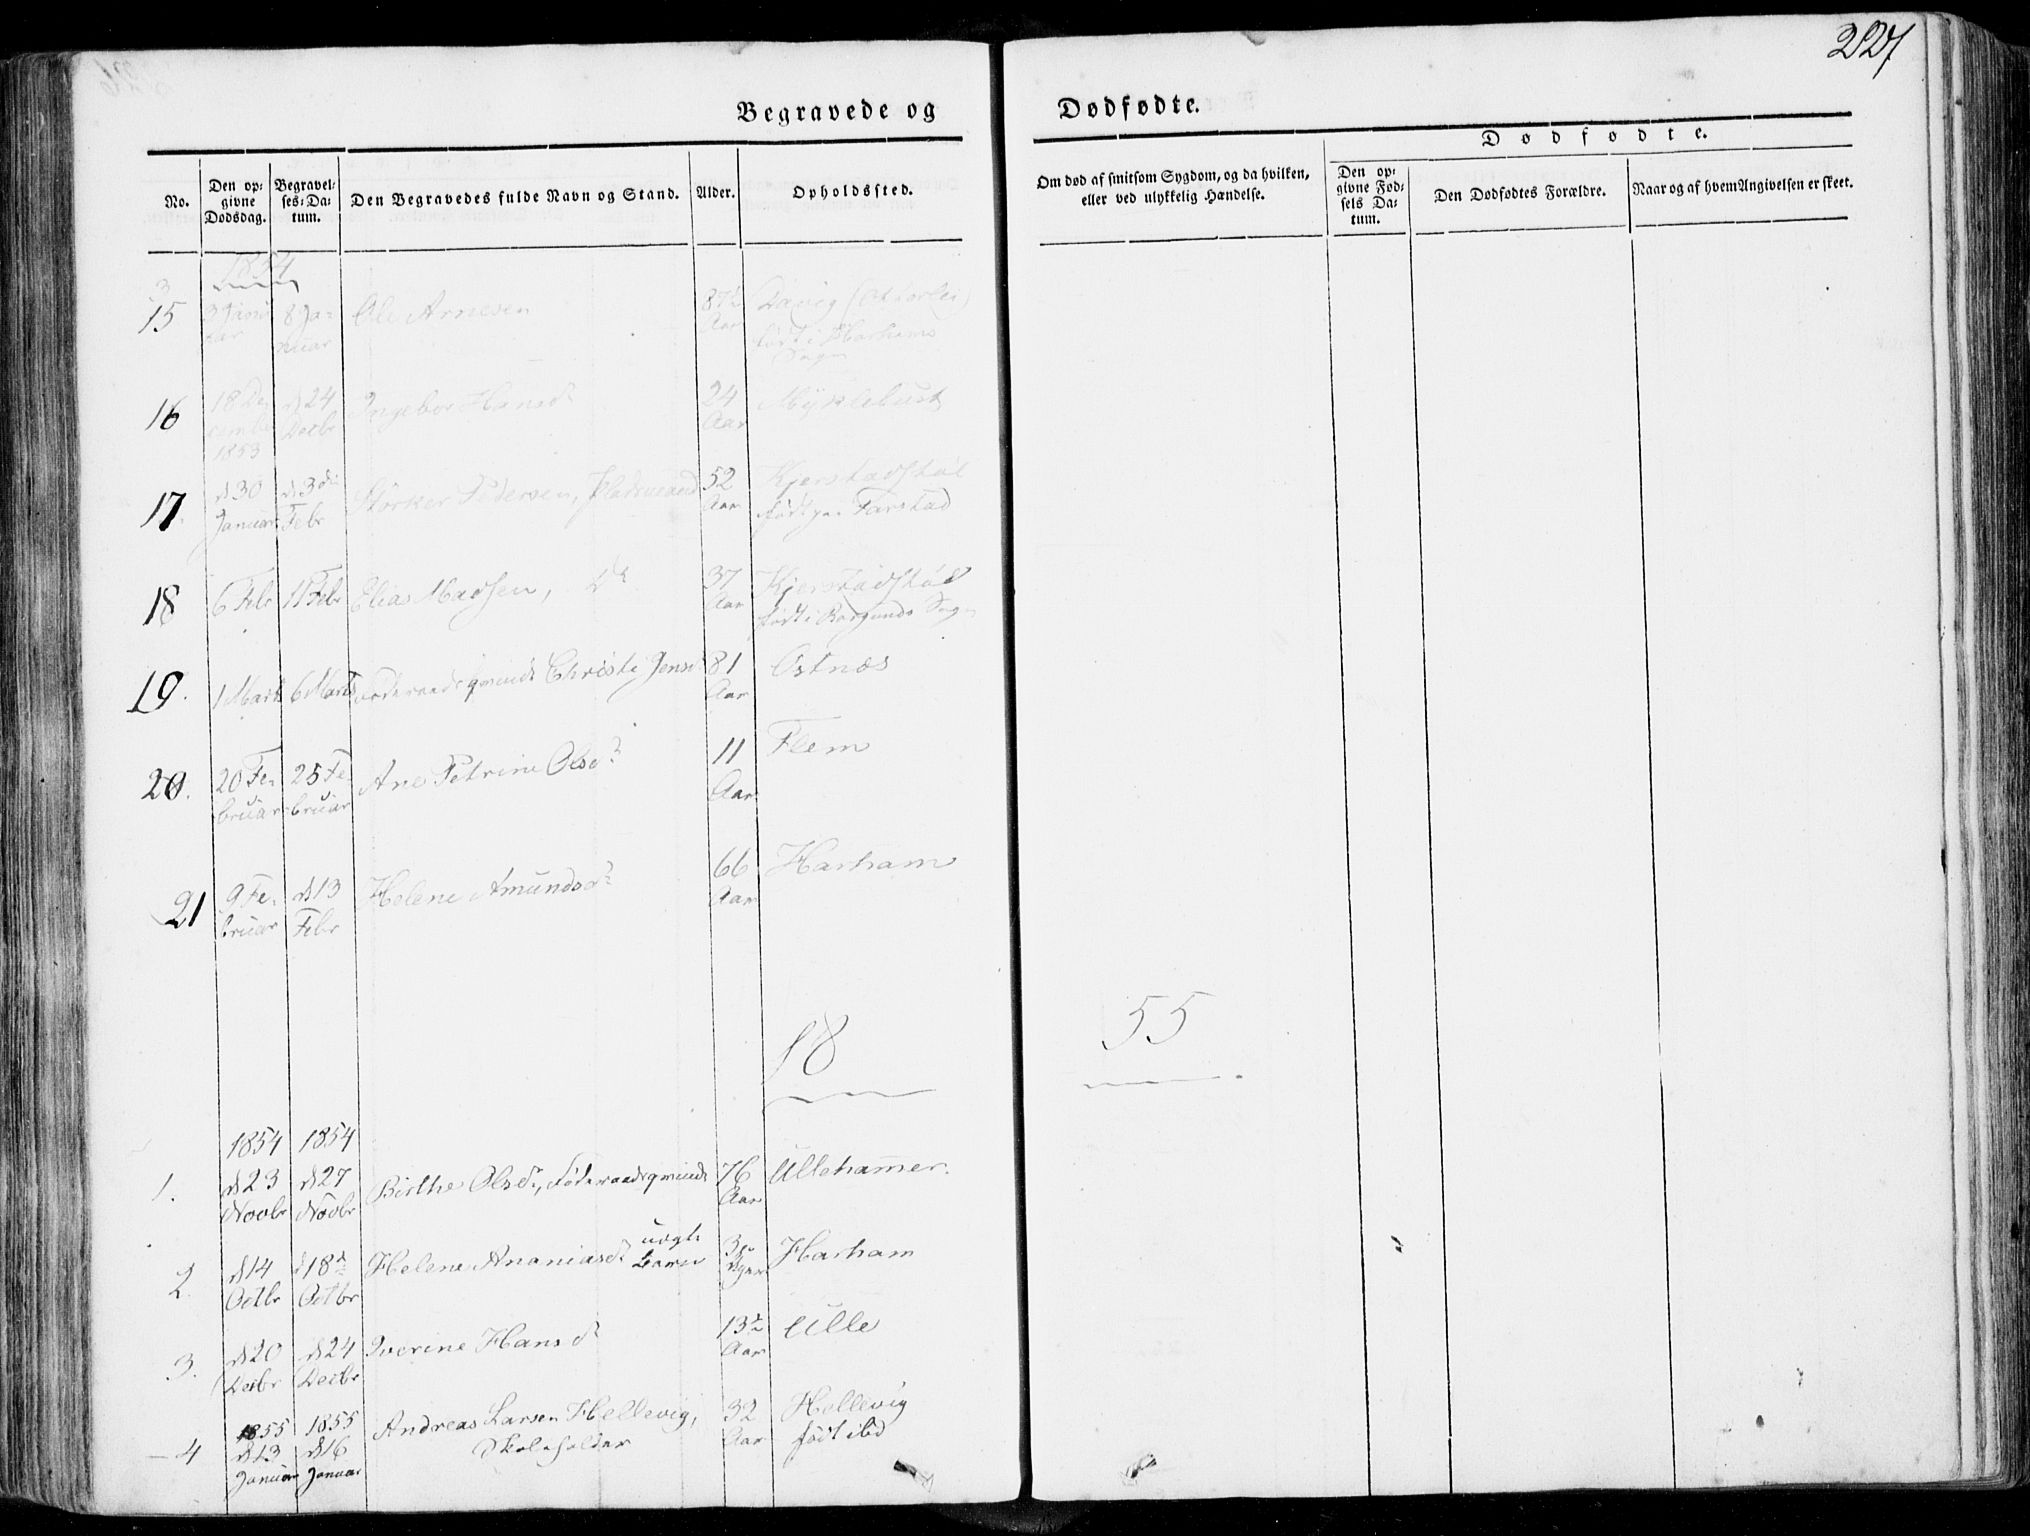 227
Begravede og Dødfødte.
No.
Den opgivne Dødsdag.
Begravelses-Datum.
Den Begravedes fulde Navn og Stand.
Alder.
Opholdssted.
Om død af smitsom Sygdom, og da hvilken, eller ved ulykkelig Hændelse.
Dødfødte.
Den opgivne Fødsels Datum.
Den Dødfødtes Forældre.
Naar og af hvem Angivelsen er skeet.
1854
15 3 Januar 8 Januar Ole Arnesen 87 Aar
født i Harhams Sogn
16 18 December 1853 d 24 Decbr Ingebor Hansd 24 Aar Myklebust
17. d 30 Januar d 3die Febr Størker Pedersen, Pladsmand 52 Aar Kjerstadstøl
født paa Farstad
18 6 Febr 11 Febr Elias Madsen, do 37 Aar Kjerstadstøl
født i Borgunds Sogn
19. 1 Marts 6 Marts Føderaadsqvinde Christi Jensd 81 Aar Østnæs
20. 20 Februar 25 Februar Ane Petrine Olsd 11 Aar Flem
21 9 Februar d 13 Febr Helene Amundsd 66 Aar Harham
18
55
1854 1854
1. d 23 Novbr d 27 Novbr Birthe Olsd, Føderaadsqvinde 76 Aar Ullehammer.
2. d 14 Octbr d 18de Octbr Helene Ananiasd uægte Barn 3 Uger Harham
3. d 20 Decbr d 24 Decbr Iverine Hansd 13 Aar Ulle
1855 1855
4 d 13 Januar d 16 Januar Andreas Larsen Hellevig, Skoleholder 32 Aar Hellevig
født ibd